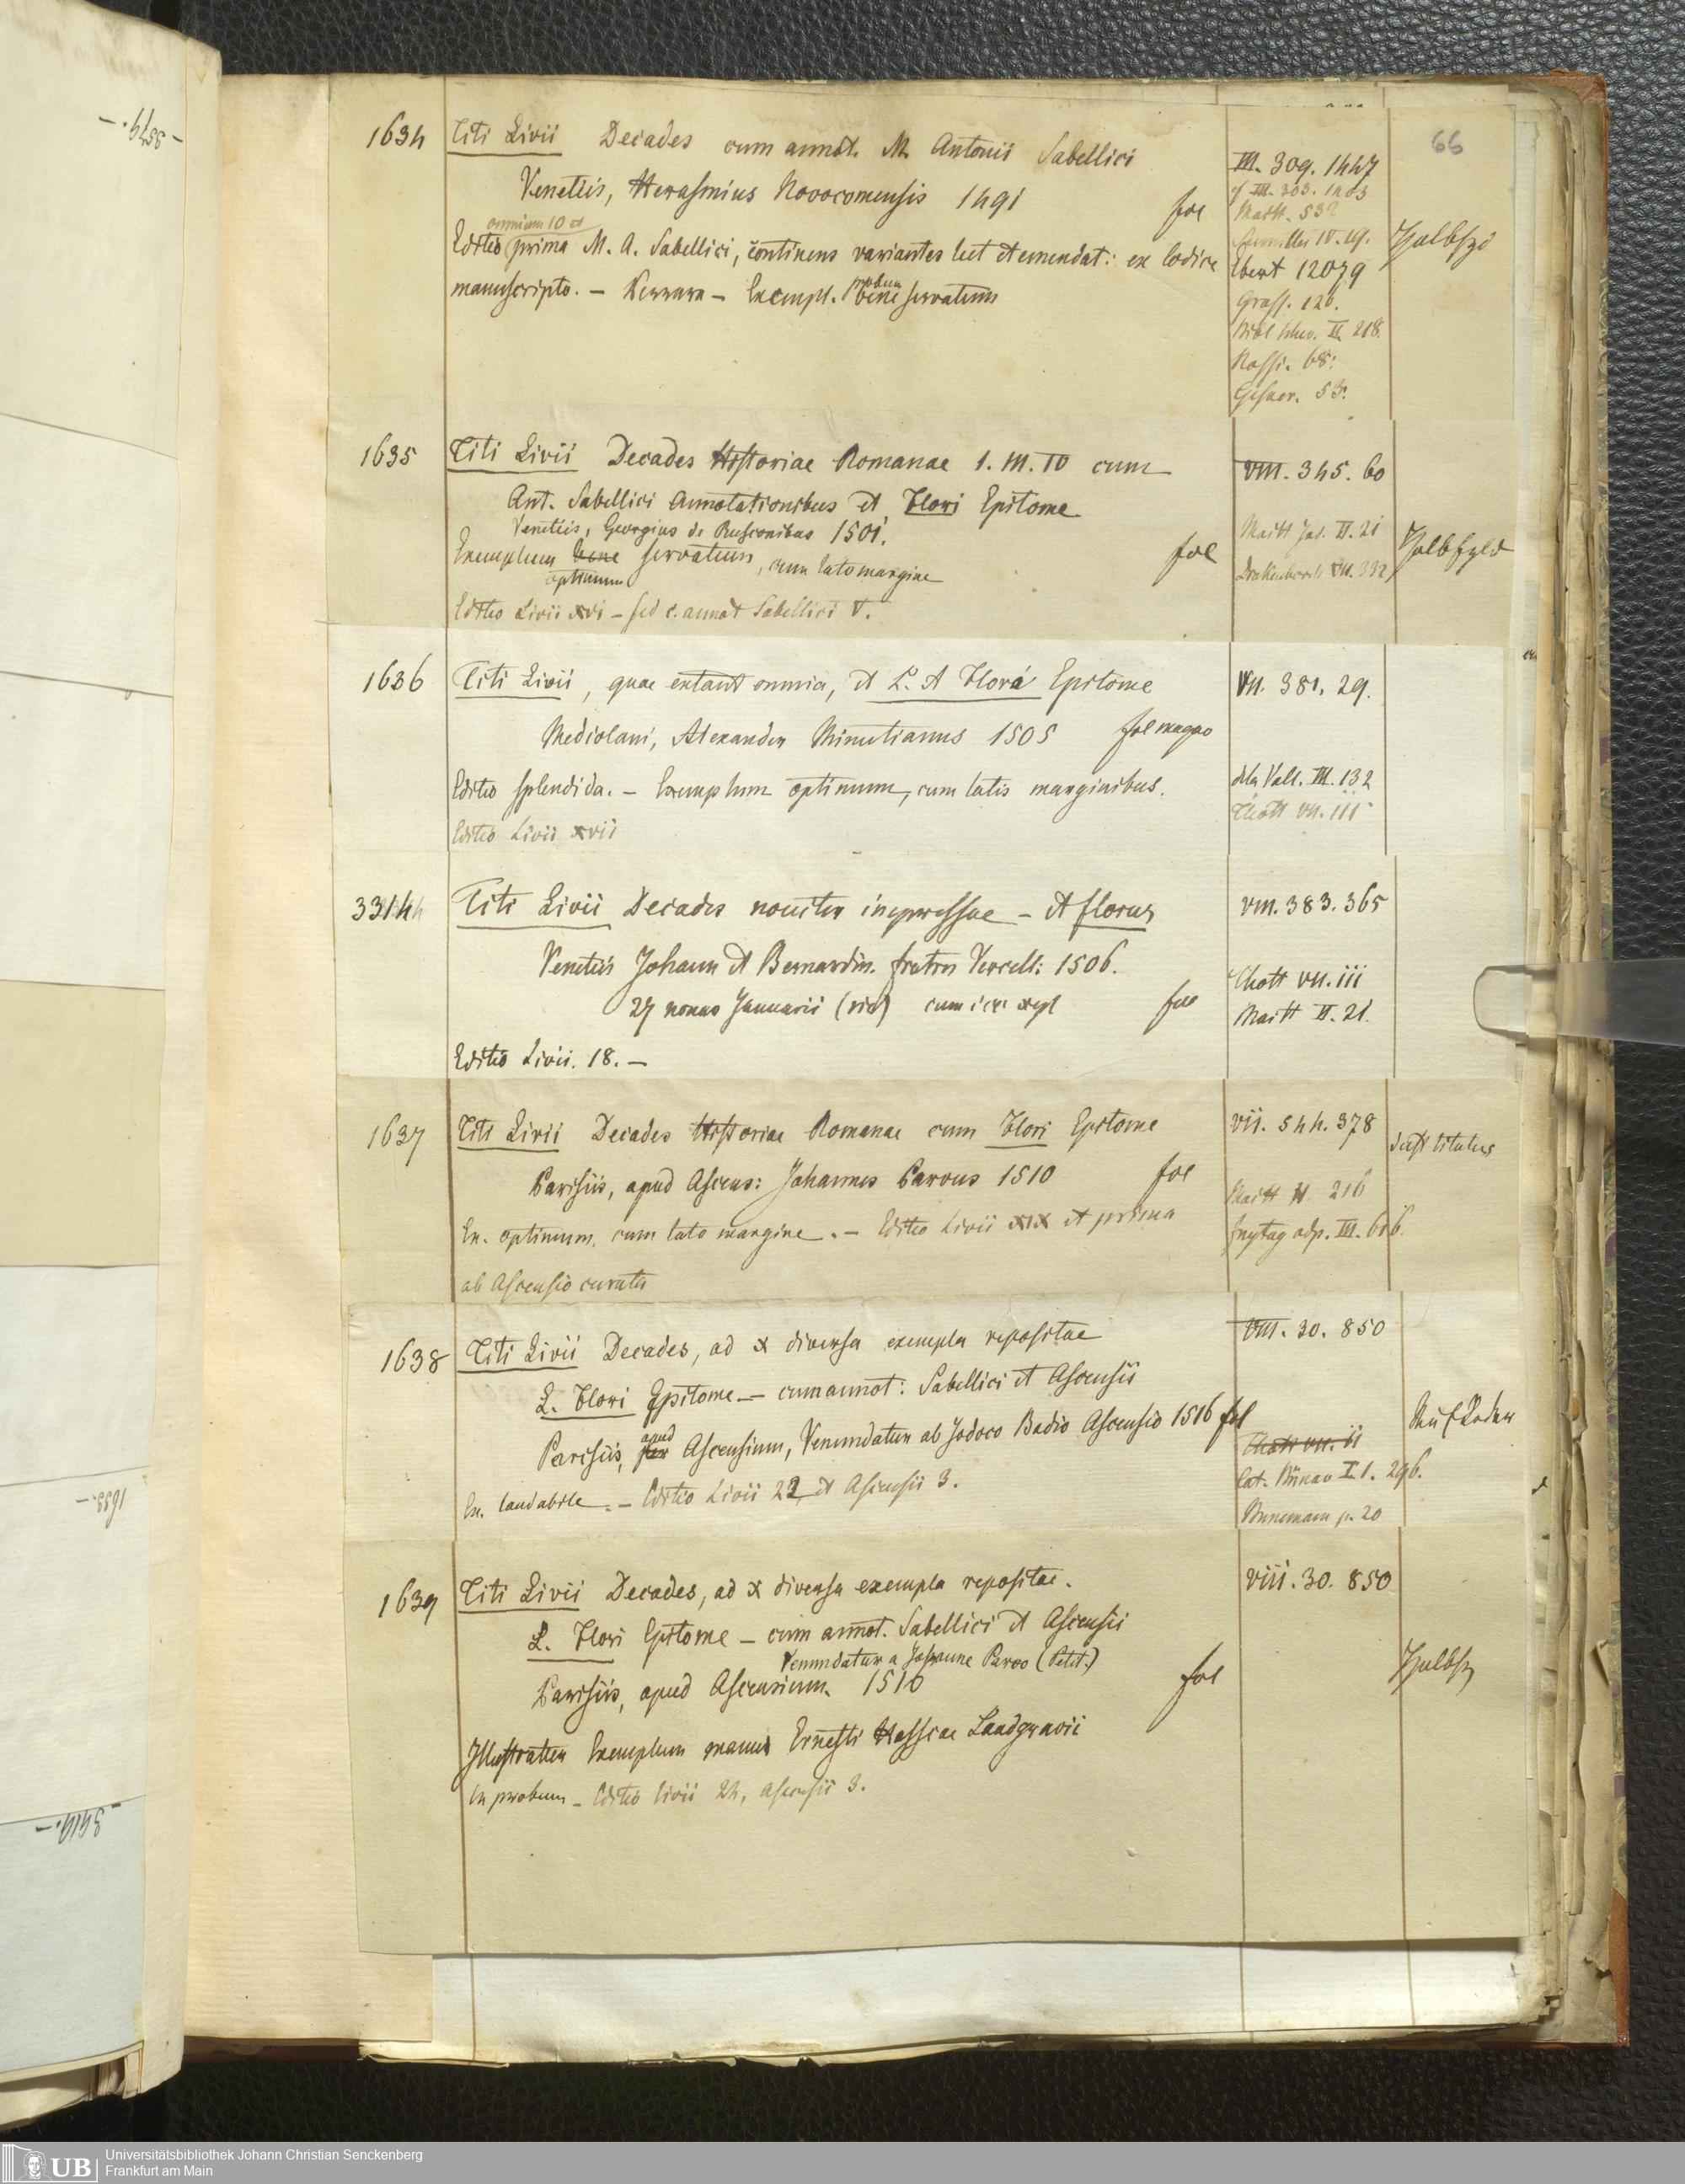 66
1634 Titi Livii Decades cum annot. M. Antonii Sabellici
Venetiis, Herasmius Novocomensis 1491 fol
omnium 10 et
Editio prima M. A. Sabellici, continens variantes lect et emendat: ex Codice
manuscripto. – – Exempl. probum bene servatum
III. 309. 1447
cf III. 303. 1403
Maitt. 532
IV. 19.
Ebert 12079
Graff. 126.
II. 218.
Rossi. 68.
Gesner. 53.
Halbfzd
1635 Titi Livii Decades Historiae Romanae I. III. IV cum
Ant. Sabellici Annotationibus et Flori Epitome
Venetiis, Georgius de Rusconibus 1501.
Exemplum bene servatum, cum lato margine fol
optimum
Editio Livii xvi – sed c. annot Sabellici V.
VIII. 345. 60
Maitt Ind. II. 21
Drakenborch VII. 332
1636 Titi Livii, quae extant omnia, et L. A Flori Epitome
Mediolani, Alexander Minutianus 1505 fol magno
Editio splendida. – Exemplum optimum, cum latis marginibus.
Editio Livii xvii
VII. 381. 29.
dela Vall. III. 132
Thott VII. iii
3314 Titi Livii Decades noviter impressae – et florus
Venetiis Johann et Bernardin. fratres Vercell: 1506.
27 nonas Januarii (sic) cum icc: xyl fol
Editio Livii. 18. –
VIII. 383. 365
Thott VII. iii
Maitt II. 21.
1637 Titi Livii Decades Historiae Romanae cum Flori Epitome
Parisiis, apud Ascens: Johannes Parvus 1510 fol
Ex. optimum, cum lato margine. – Editio Livii xix et prima
ab Ascensio curata
vii. 544. 378
Maitt II 216
Freytag adp. III. 616.
deest titulus
1638 Titi Livii Decades, ad x diversa exempla repositae
L. Flori Epitome – cum annot: Sabellici et Ascensii
apud
Parisiis, per Ascensium, Venundatur ab Jodoco Badio Ascensio 1516 fol
Ex. laudabile. – Editio Livii 22, et Ascensii 3.
VIII. 30. 850
Thott VII. ii
Cat. Bünau I.1. 296.
Bunemann p. 20
1639 Titi Livii Decades, ad x diversa exempla repositae.
L. Flori Epitome – cum annot. Sabellici et Ascensii
Venundatur a Johanne Parvo (Petit.)
Parisiis, apud Ascensium. 1516 fol
Illustratum Exemplum manu Ernesti Hassiae Landgravii
Ex probum – Editio Livii 24, Ascensii 3.
viii. 30. 850
UB
Universitätsbibliothek Johann Christian Senckenberg
Frankfurt am Main